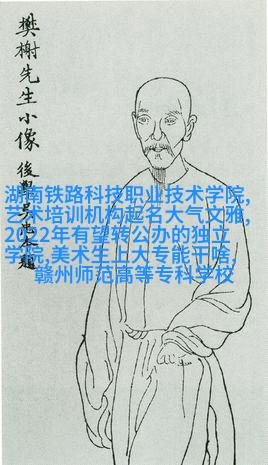 樊榭先生小像
後學吴屯本題
湖南铁路科技职业技术学院,
艺术培训机构起名大气文雅,
2022年有望转公办的独立
学院,美术生上大专能干啥,
赣州师范高等专科学校